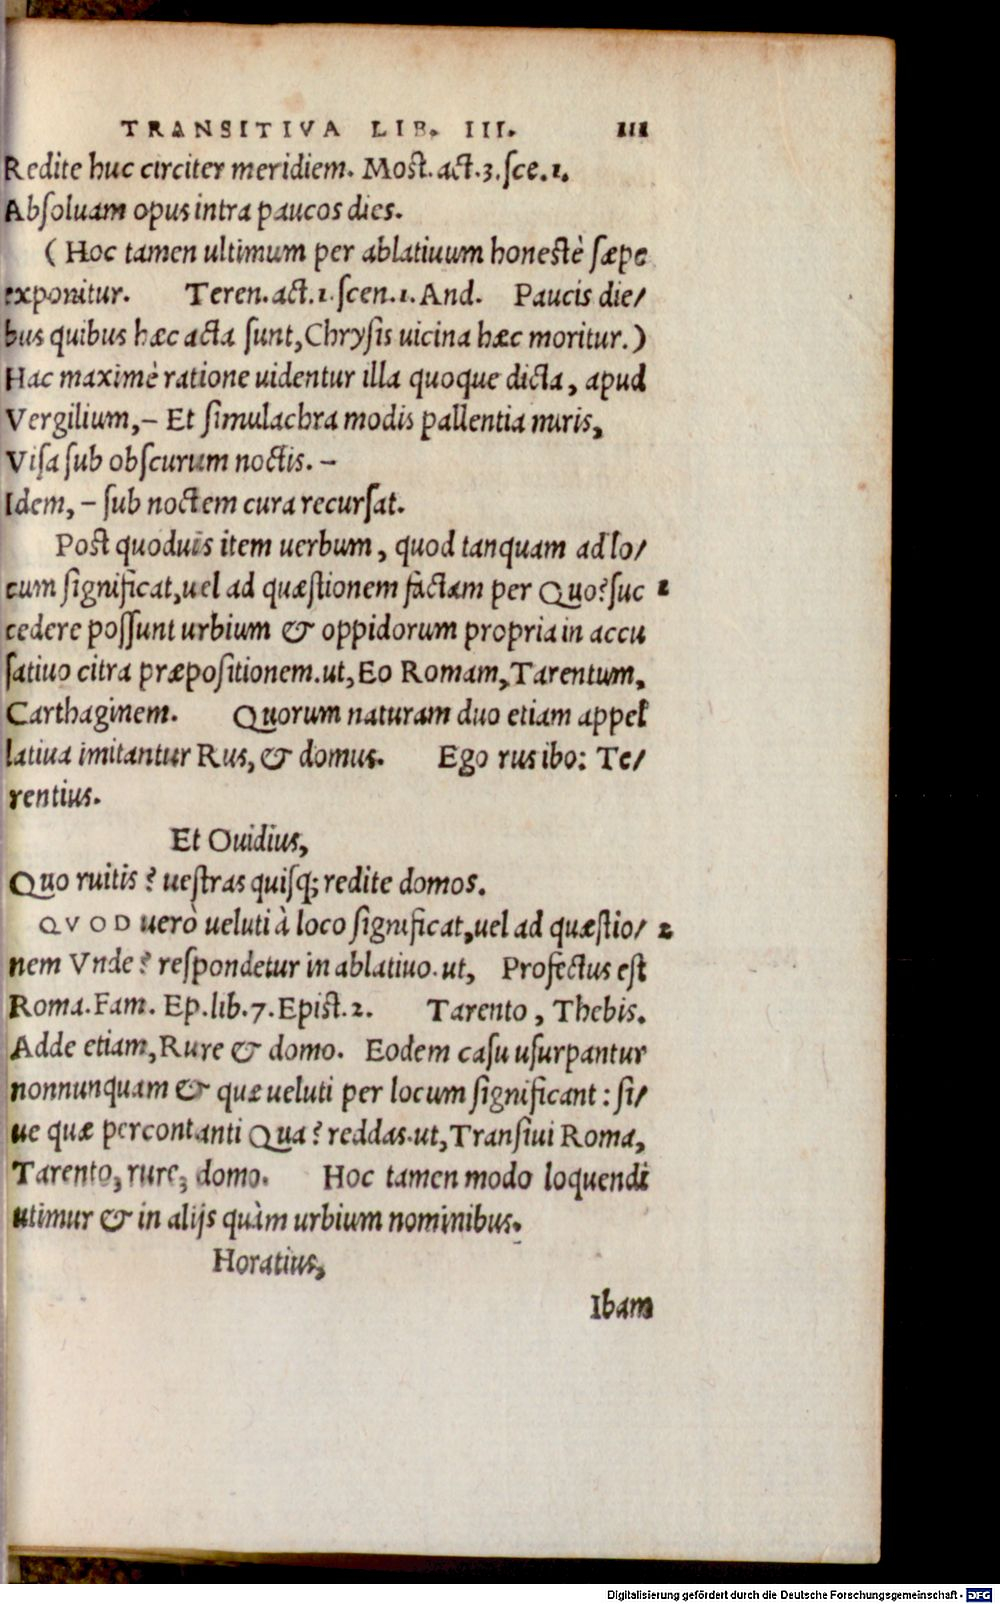 TRANSITIVA LIB. III. 111
Redite huc circiter meridiem. Most. act.3.sce.1.
Absoluam opus intra paucos dies.
( Hoc tamen ultimum per ablatiuum honestè sæpe
exponitur. Teren.act.1.scen.1.And. Paucis die/
bus quibus hæc acta sunt, Chrysis uicina hæc moritur.)
Hac maximè ratione uidentur illa quoque dicta, apud
Vergilium,– Et simulachra modis pallentia miris,
Visa sub obscurum noctis. –
Idem, – sub noctem cura recursat.
Post quoduis item uerbum, quod tanquam ad lo/
cum significat, uel ad quæstionem factam per Quo? suc 2
cedere possunt urbium & oppidorum propria in accu
satiuo citra præpositionem.ut, Eo Romam, Tarentum,
Carthaginem. Quorum naturam duo etiam appel
latiua imitantur Rus, & domus. Ego rus ibo: Te/
rentius.
Et Ouidius,
Quo ruitis? uestras quisq; redite domos.
QVOD uerò ueluti à loco significat, uel ad quæstio/ 2
nem Vnde? respondetur in ablatiuo.ut, Profectus est
Roma. Fam. Ep.lib.7.Epist.2. Tarento, Thebis.
Adde etiam, Rure & domo. Eodem casu usurpantur
nonnunquam & quæ ueluti per locum significant: si/
ue quæ percontanti Qua? reddas.ut, Transiui Roma,
Tarento, rure, domo. Hoc tamen modo loquendi
utimur & in alijs quàm urbium nominibus.
Horatius,
Ibam
Digitalisierung gefördert durch die Deutsche Forschungsgemeinschaft - DFG